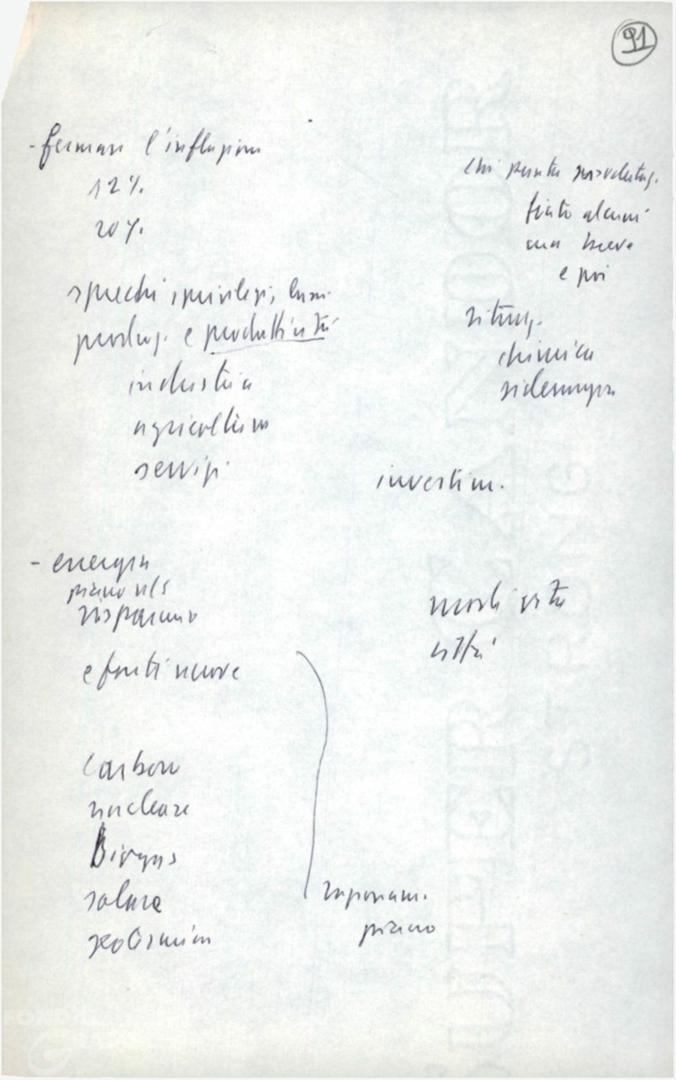 91
- fermare l'inflazione
12%
20%
sprechi, privilegi,
produz. e produttività
industria
agricoltura
servizi
chi punta svalutaz.
fiato alcuni
ma breve
e poi
ristrutt.
chimica
siderurgia
investim.
- energia
piano
risparmio
e fonti nuove
carbone
nucleare
Biogas
solare
geotermia
risponiam.
piano
modi vita
città